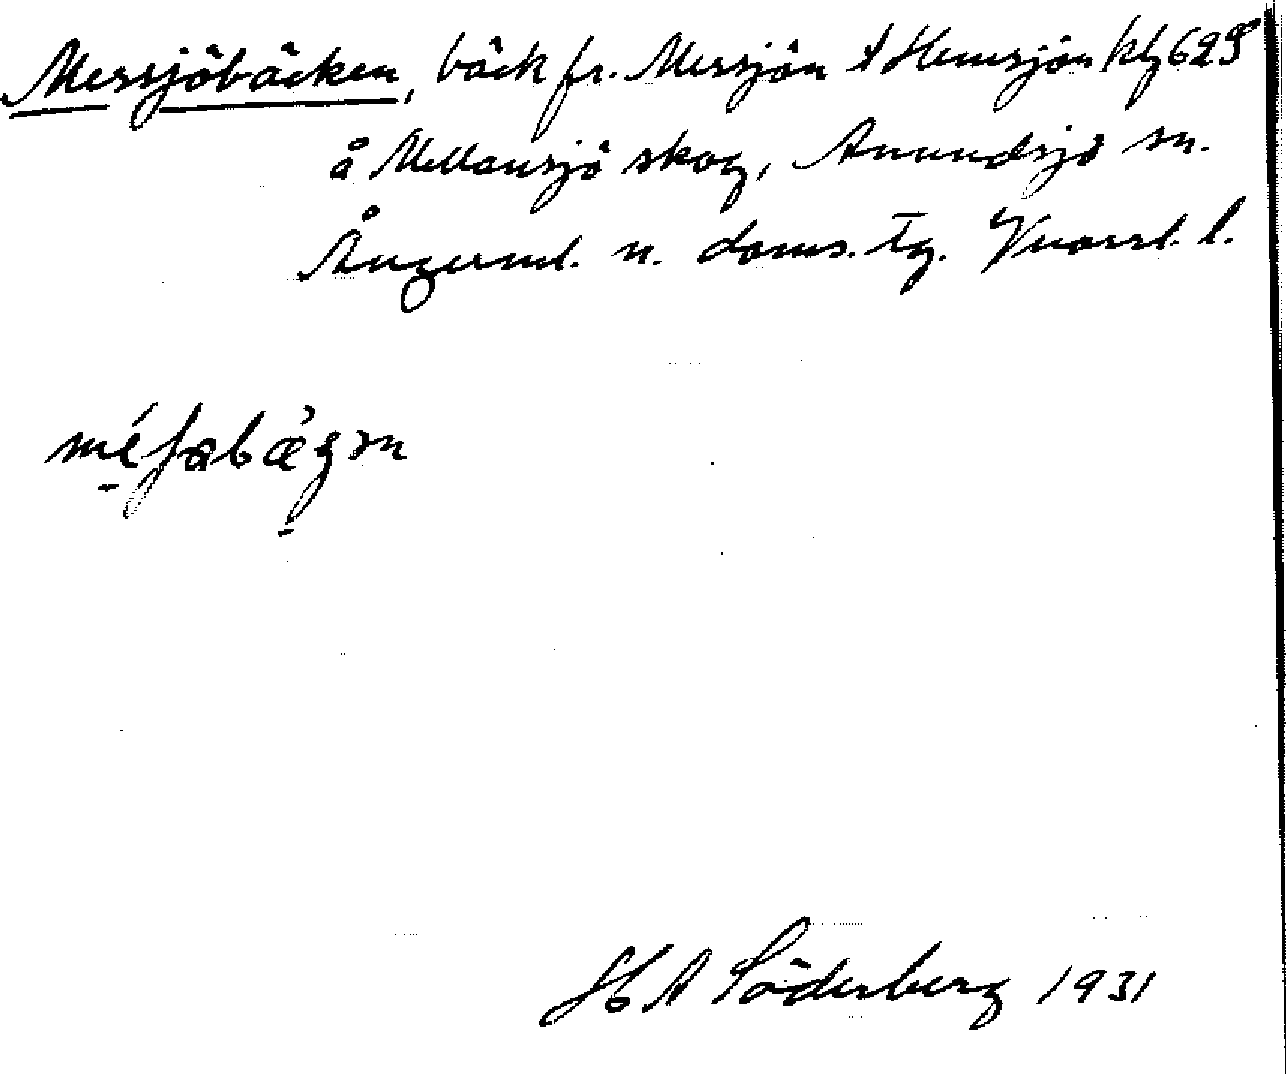 Messjöbäcken, bäck fr. Messjön t Hemsjön kbl 629
å Mellansjö skog, Anundsjö sn.
Ångerml. n. doms. tg. Vnorrl. l.
H A Söderberg 1931